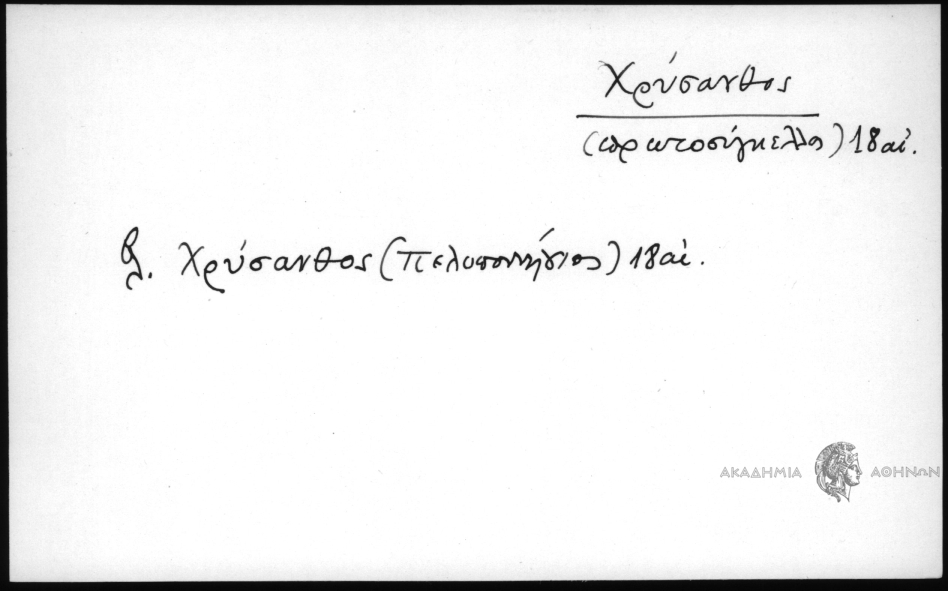 Χρύσανθος
(πρωτοσύγκελλος) 18 αἰ.
βλ. Χρύσανθος (Πελοποννήσιος) 18 αἰ.
ΑΚΑΔΗΜΙΑ ΑΘΗΝΩΝ